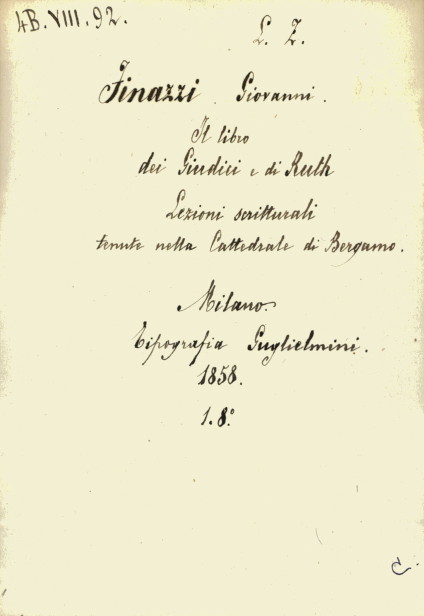 4B. VIII. 92.
L. Z.
Finazzi Giovanni.
Il libro
dei Giudici e di Ruth
Lezioni scritturali
tenute nella Cattedrale di Bergamo.
Milano.
Tipografia Guglielmini.
1858.
1. 8.°
C.